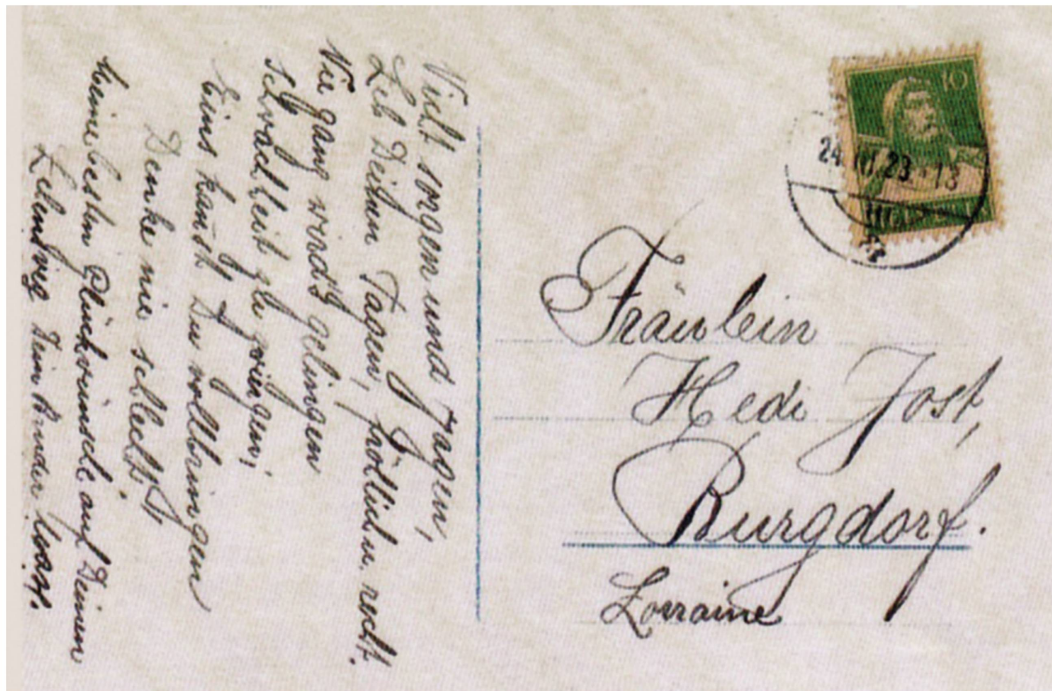 Nicht sorgen und zagen,
Leb Deinen Tagen, fröhlich u. recht.
Nie ganz wird's gelingen
Schwachheit zu zwingen;
Eins kanst Du vollbringen
Denke nie schlecht!
Meine besten Glückwünsche auf Deinen
Lebensweg Dein Bruder
10
24. 23-13
HELVETIA
Fräulein
Hedi Jost,
Burgdorf.
Lorraine